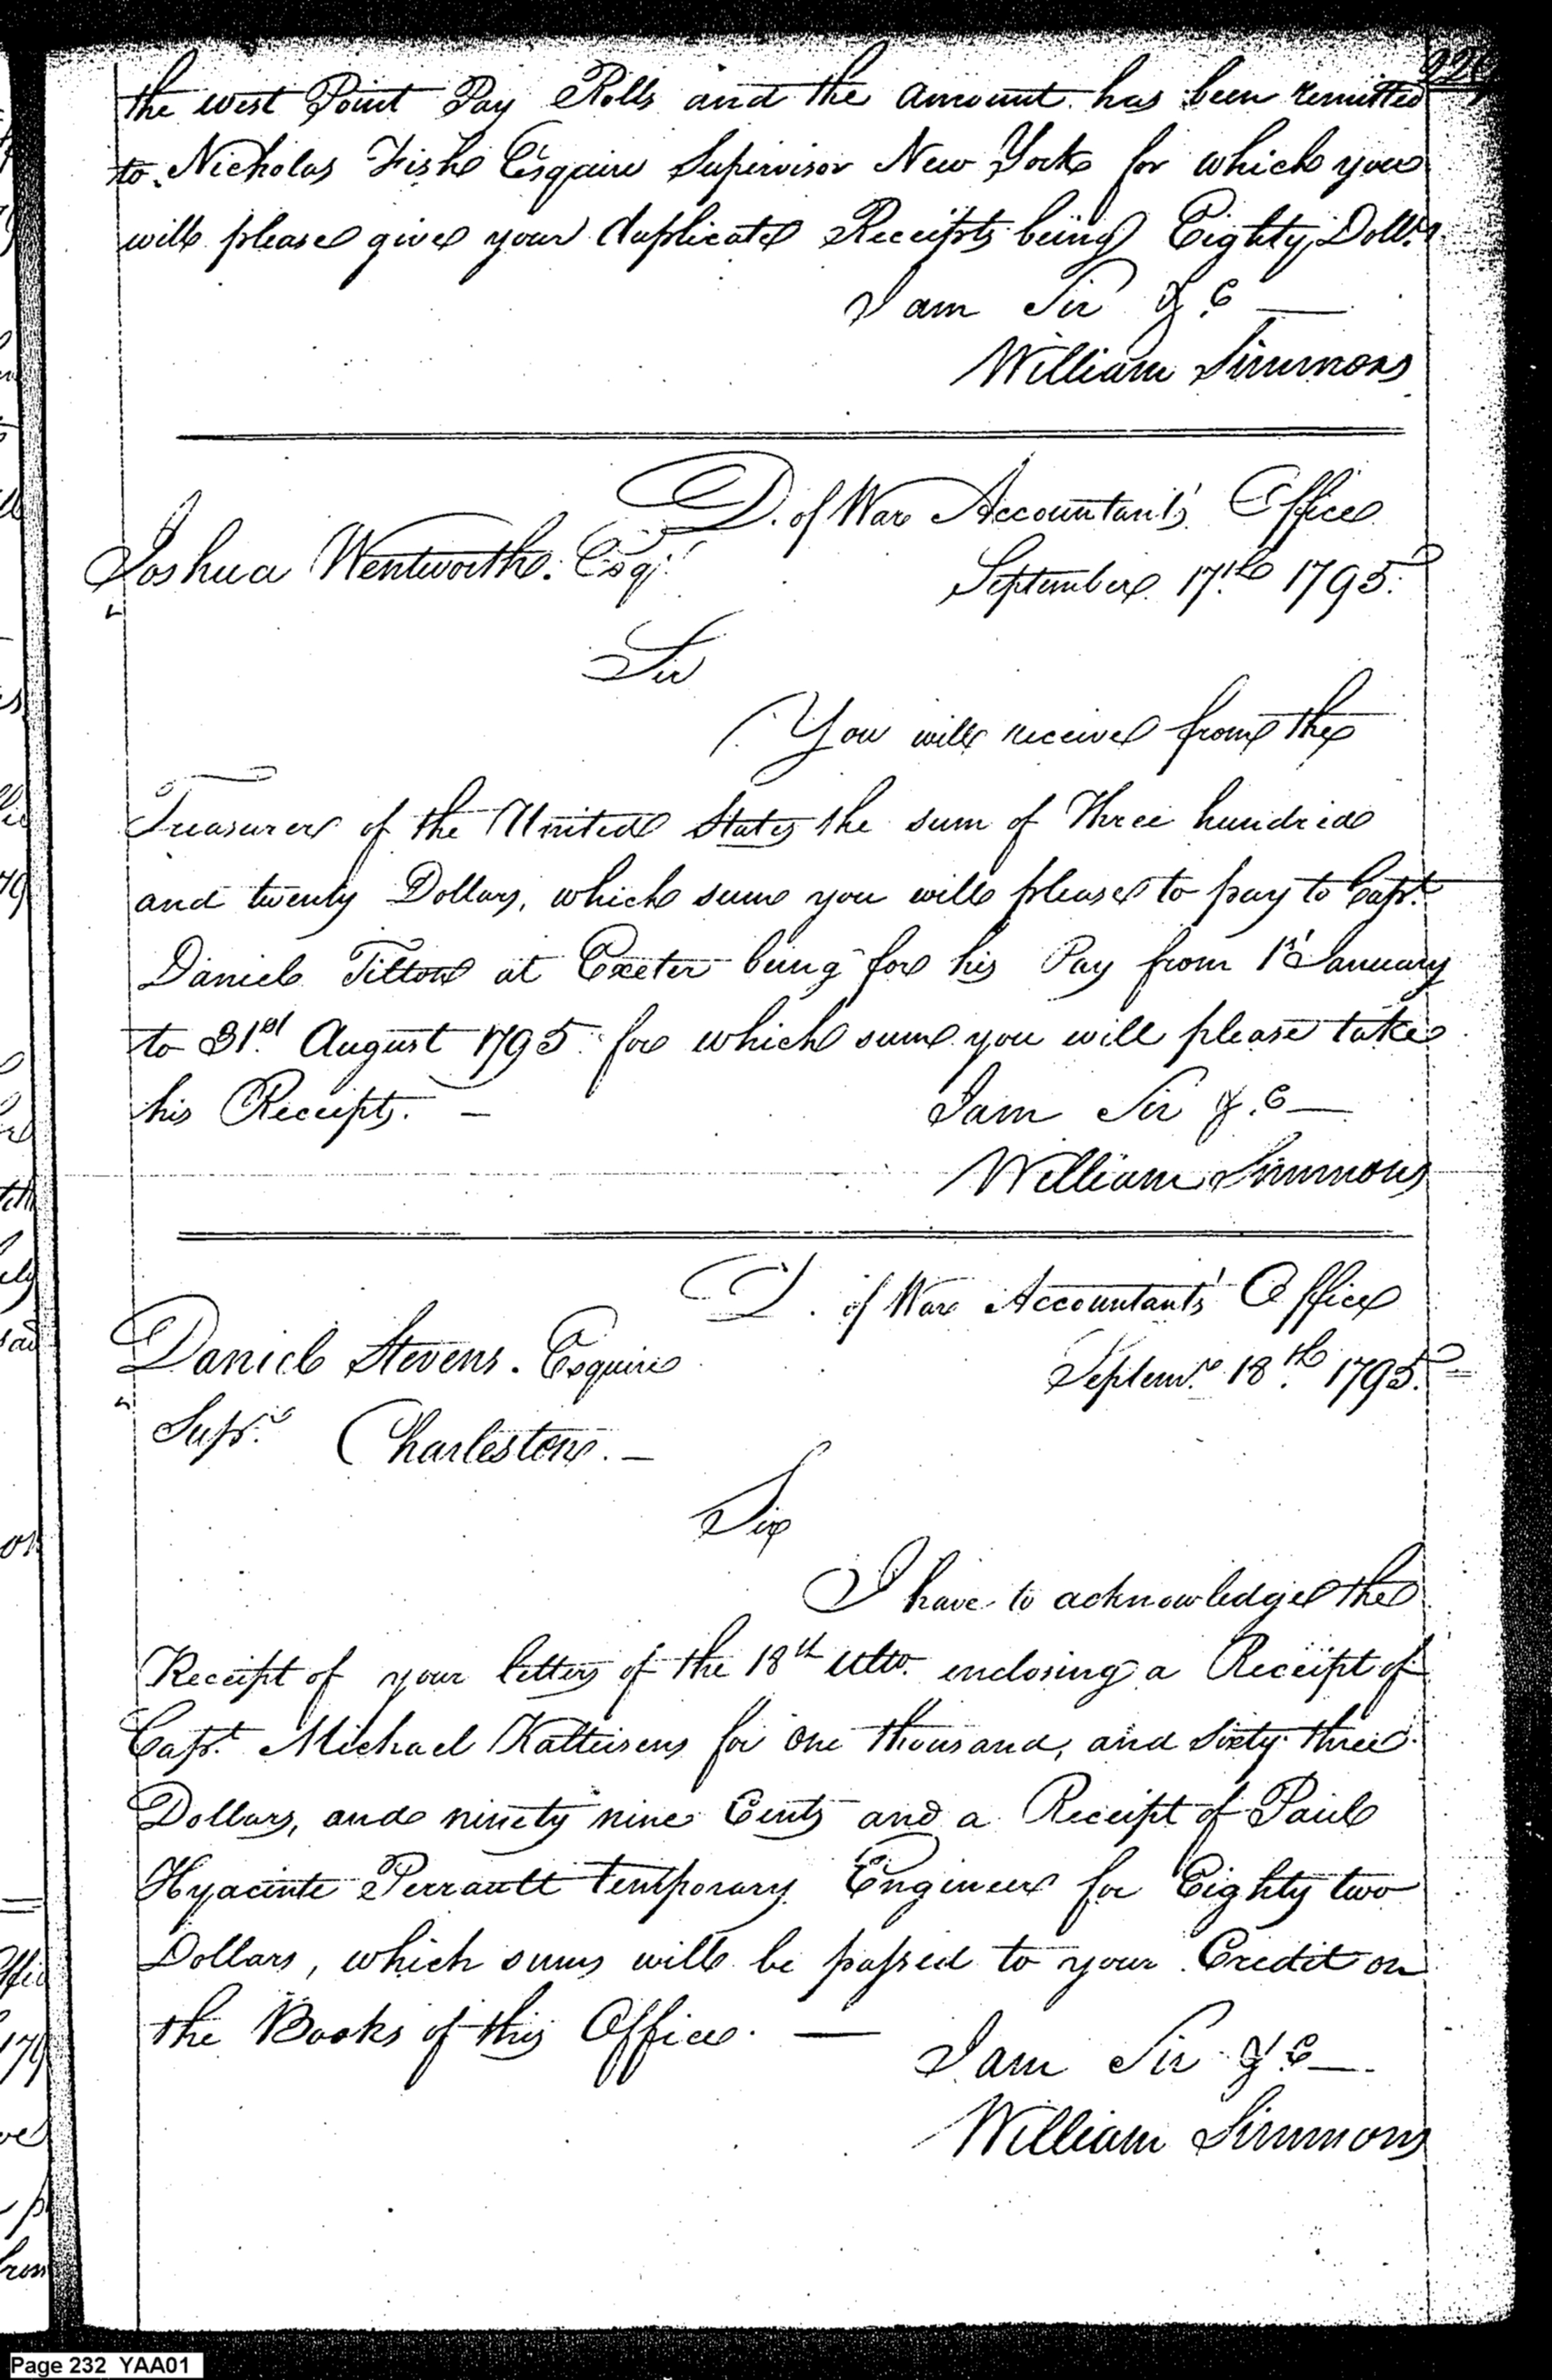 the west Point Pay Rolls and the amount has been remitted
to Nicholas Fish Esquire Supervisor New York for which you
will please give your duplicate Receipts being Eighty Doll.s
I am Sir &.c —
William Simmons
D. of War Accountant's Office
Joshua Wentworth. Esqr.
September 17.th 1795.
Sir
You will receive from the
Treasurer of the United States the sum of Three hundred
and twenty Dollars, which sum you will please to pay to Capt.
Daniel Tilton at Exeter being for his Pay from 1st January
to 31.st August 1795 for which sum you will please take
his Receipts. —
I am Sir &.c —
William Simmons
D. of War Accountant's Office
Daniel Stevens. Esquire
Septem.r 18.th 1795.
Supr. Charleston. —
Sir
I have to acknowledge the
Receipt of your letters of the 18th ulto. enclosing a Receipt of
Capt. Michael Kalteisens for One thousand, and sixty three
Dollars, and ninety nine Cents and a Receipt of Paul
Hyacinte Perrault temporary Engineer for Eighty two
Dollars, which sums will be passed to your Credit on
the Books of this Office. —
I am Sir &.c —
William Simmons
Page 232 YAA01